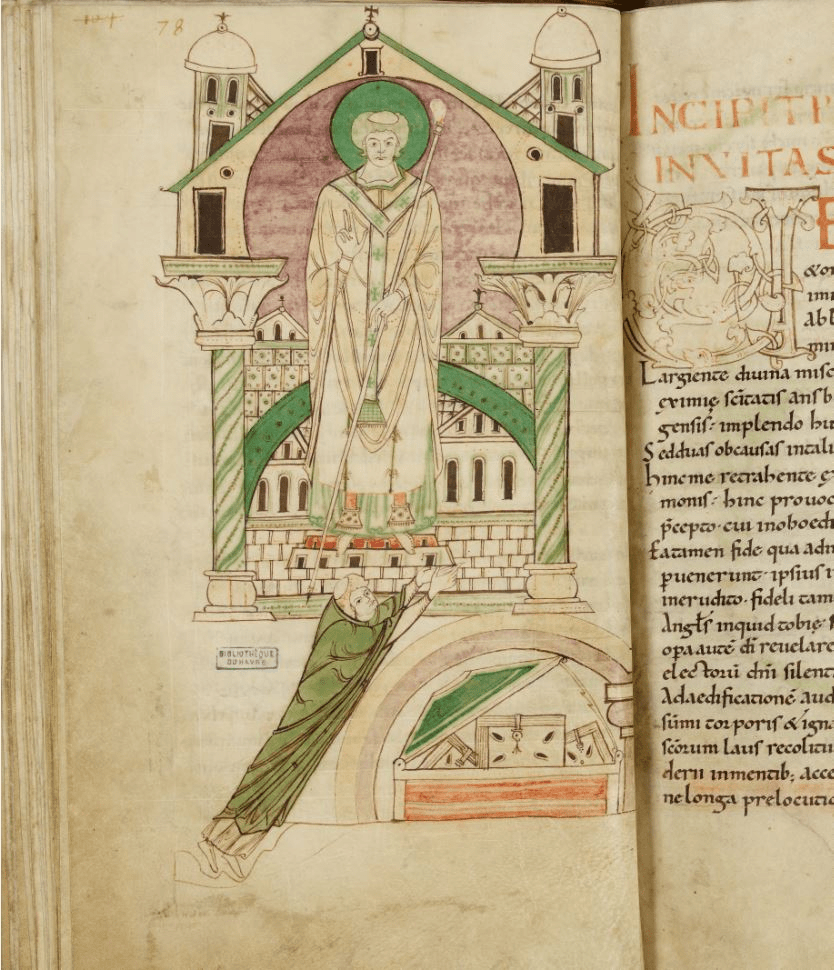 104 78
BIBLIOTHÈQUE
DU HAVRE
INCIPIT
IN VITA S
Largiente diuina misc
eximię scĩtatis ansb
gensis: implendo hu
Sed duas ob causas
hinc me retrahente
monis: hinc prouoc
p̄cepto. cui inoboedi
Eatamen fide qua adm
puenerunt. ipsius
inerudito. fideli tam
Angls̄ inquid tobię.
opa autē dī reuelare
electorū dn̄i silent
Ad aedificationē aud
sūmi corporis & igna
scōrum laus recolitu
derii inmentib; acce
ne longa prelocutio